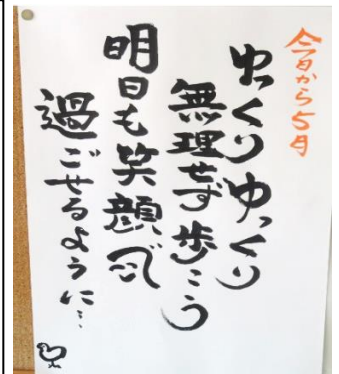 今日から5月
ゆっくりゆっくり
無理せず歩こう
明日も笑顔で
過ごせるように…